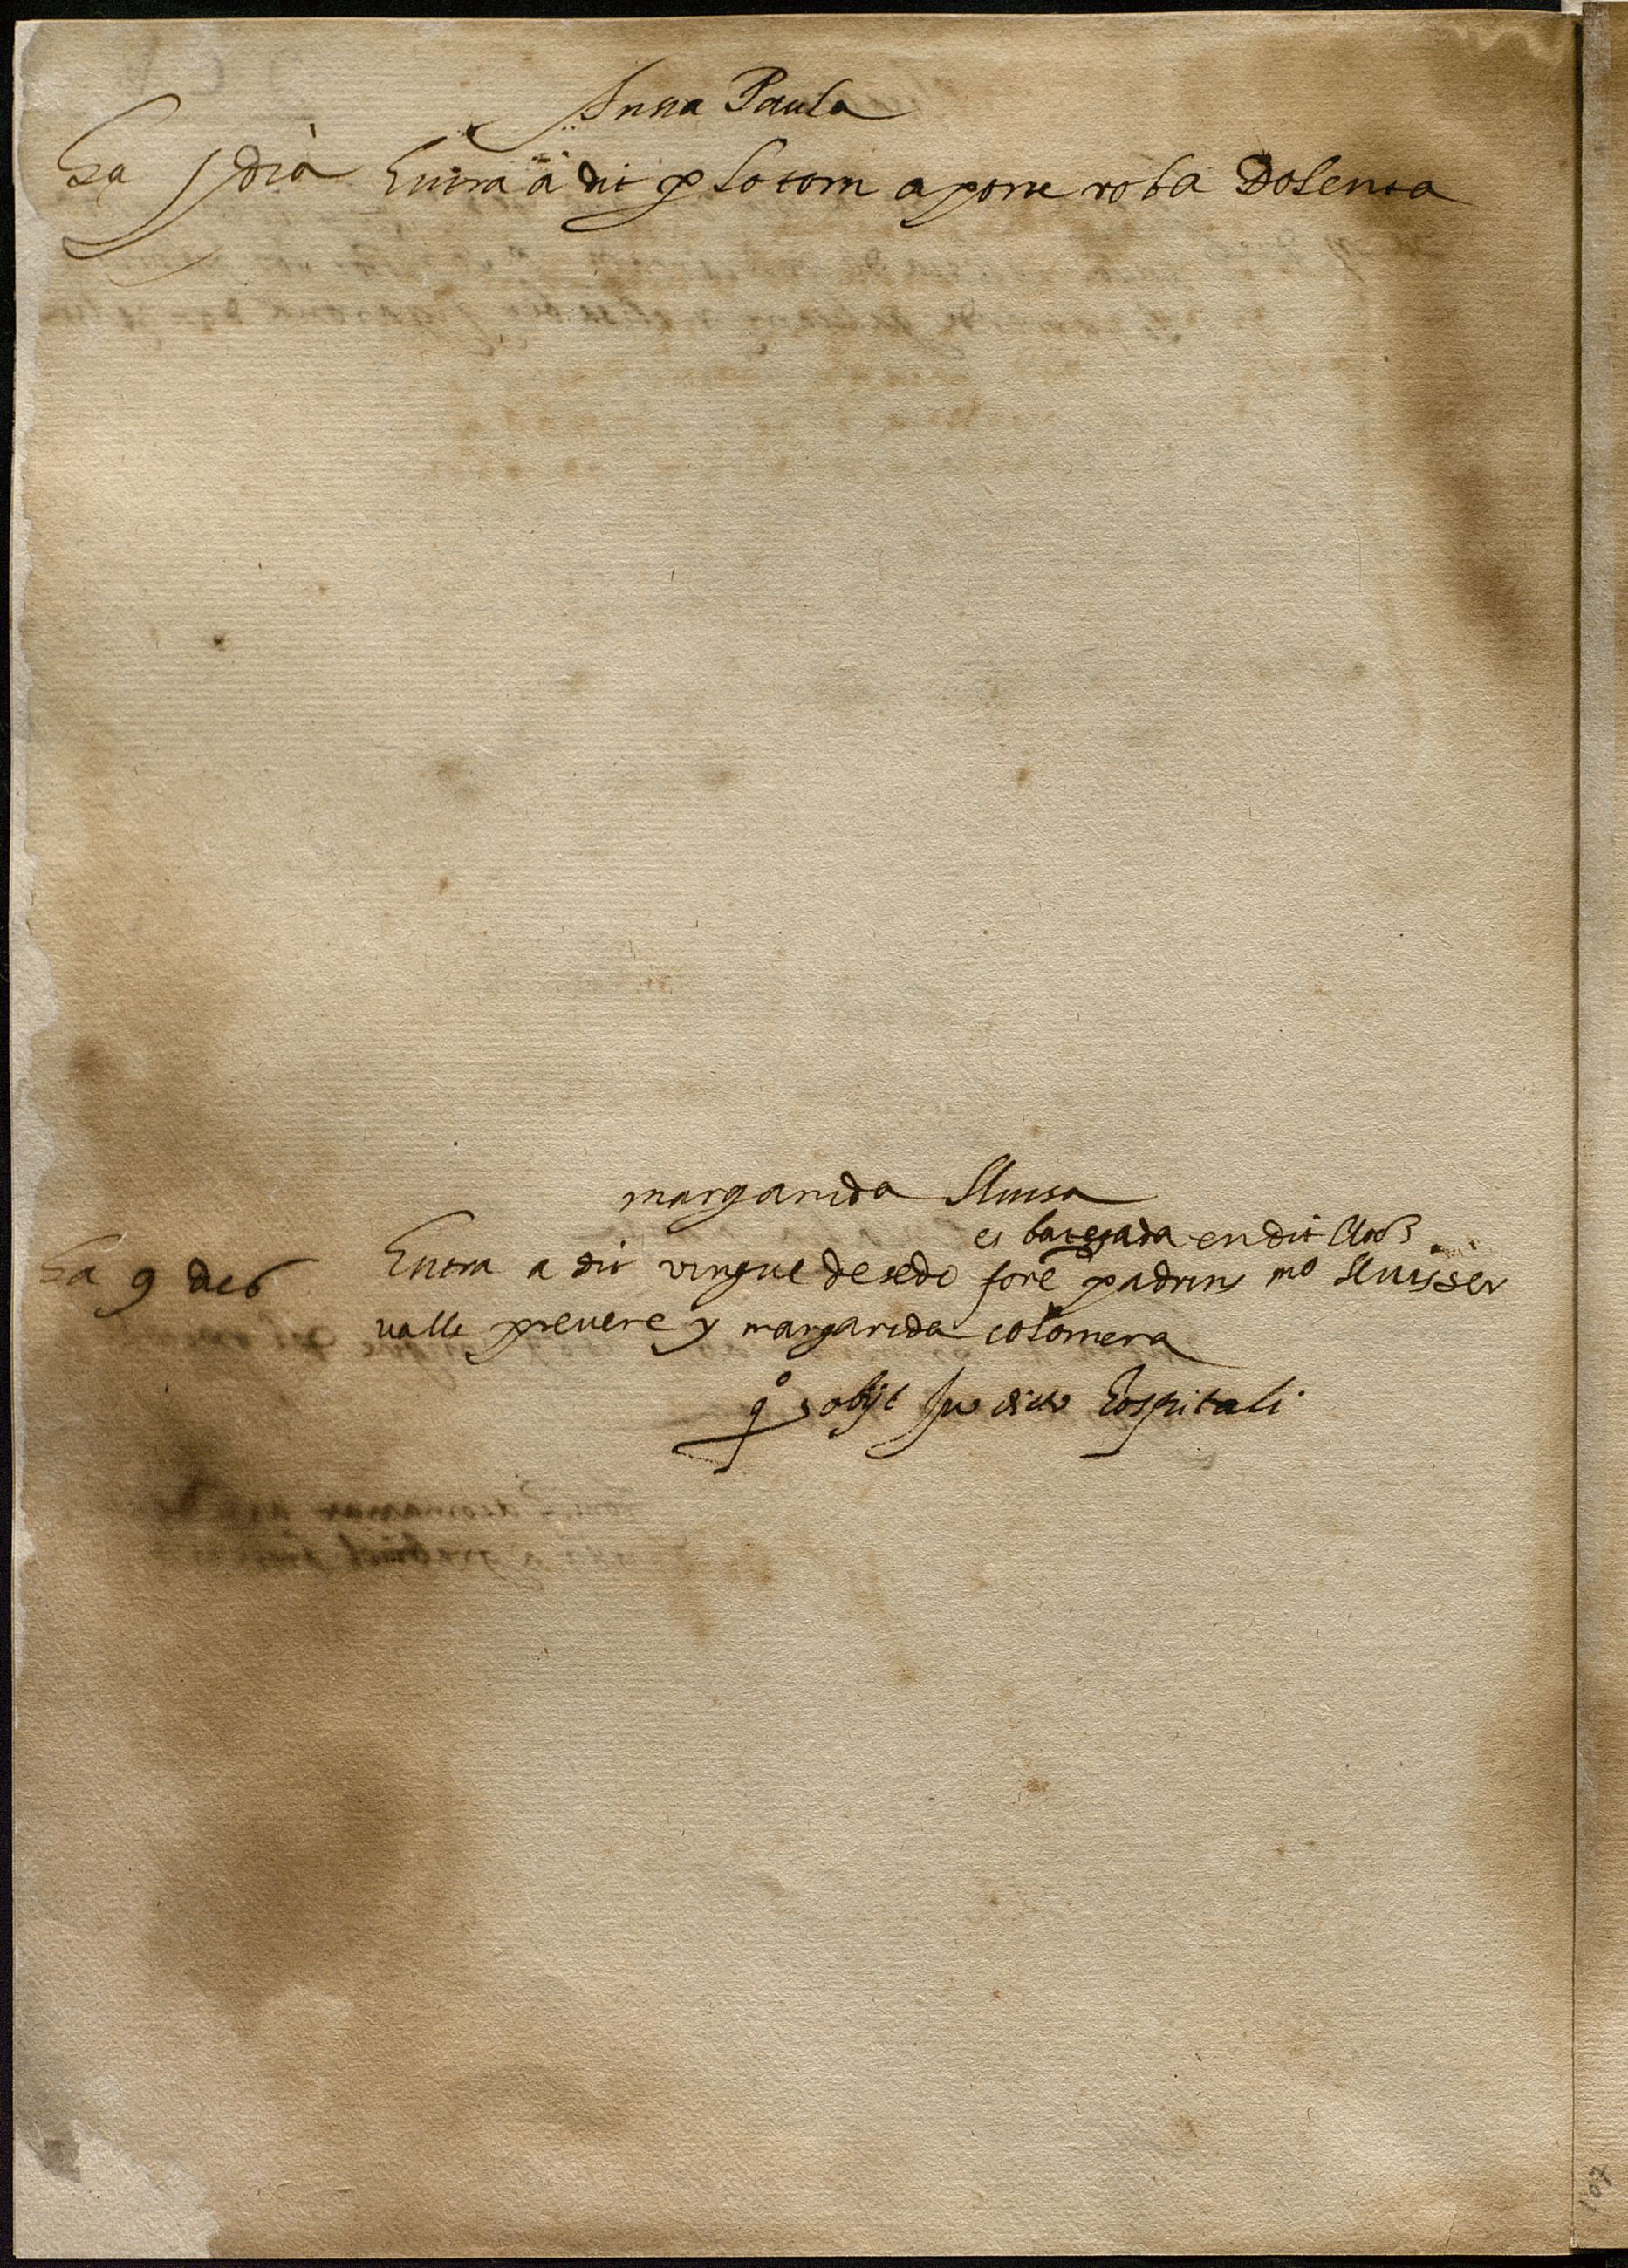 Anna Paula
Ha dia Entra a dit p lo torn a porta roba Dolenta
margarida lluisa
es bategada en dit
Ha 9 deb Entra a dit vingue de sedo fore padrins mº lluis ser
valls prevere y margarida colomera
qº obijt In dicto hospitali
107